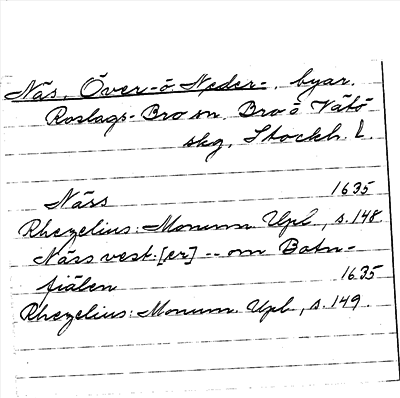 Näs, Över- o Neder-, byar.
Roslags-Bro sn, Bro o Vätö
skg, Stockh. l.
Näss 1635
Rhezelius: Monum. Upl., s. 148
Näss vest.[er] -- om Botn-
fiälen 1635
Rhezelius: Monum. Upl., s. 149.